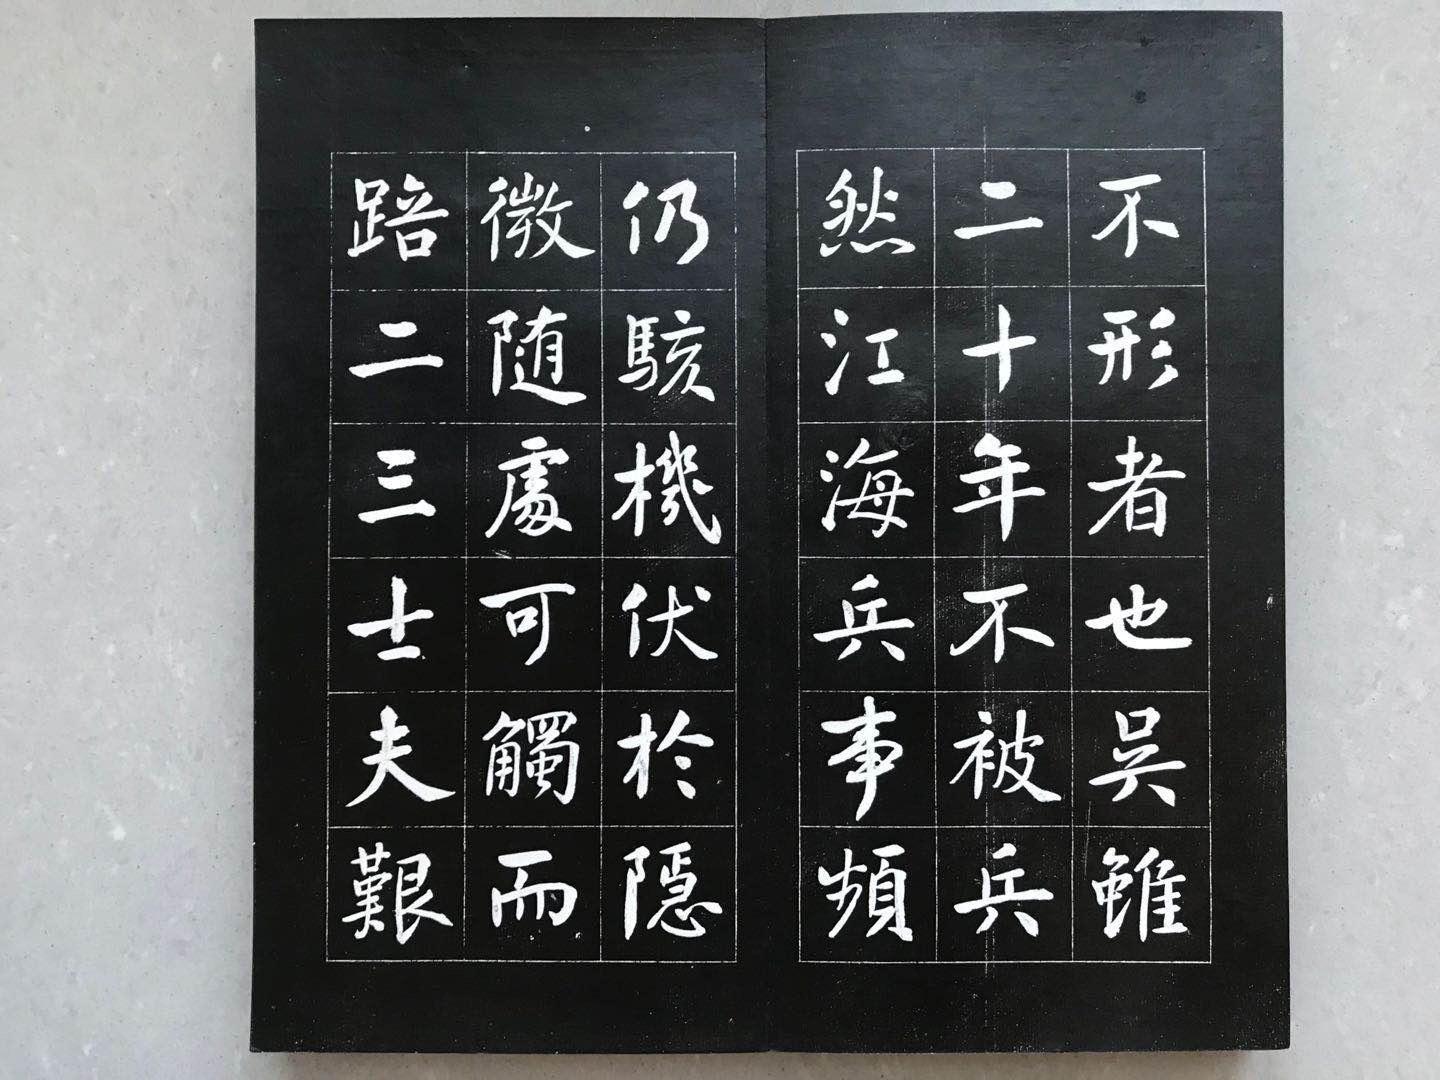 不形者也吳雖
二十年不被兵
然江海兵事頻
仍駭機伏於隱
微随處可觸而
踣二三士夫艱